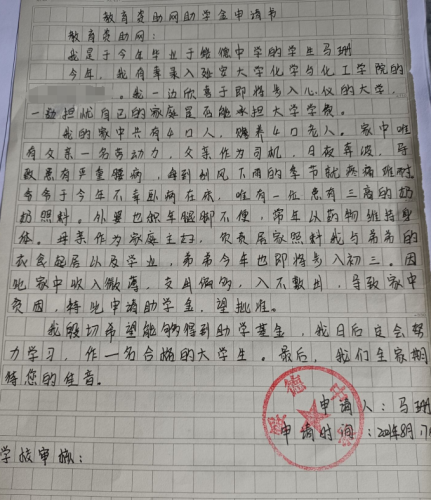 教育资助网助学金申请书
教育资助网：
我是于今年毕业于绥德中学的学生马珊
今年，我有幸录入延安大学化学与化工学院的
。我一边欣喜于即将步入心仪的大学，
一边担忧自己的家庭是否能承担大学学费。
我的家中共有4口人，赡养4口老人。家中唯
有父亲一名劳动力，父亲作为司机，日夜奔波，导
致患有严重腰病，每到刮风下雨的季节就疼痛难耐
爷爷于今年不幸卧病在床，唯有一位患有三高的奶
奶照料。外婆也积年腿脚不便，常年以药物维持身
体。母亲作为家庭主妇，负责居家照料我与弟弟的
衣食起居以及学业，弟弟今年也即将步入初三。因
此家中收入微薄，支出偏多，入不敷出，导致家中
贫困，特此申请助学金，望批准。
我殷切希望能够得到助学基金，我日后定会努
力学习，作一名合格的大学生。最后，我们全家期
待您的佳音。
申请人：马珊
申请时间：2021年8月17
学校审批：
德中